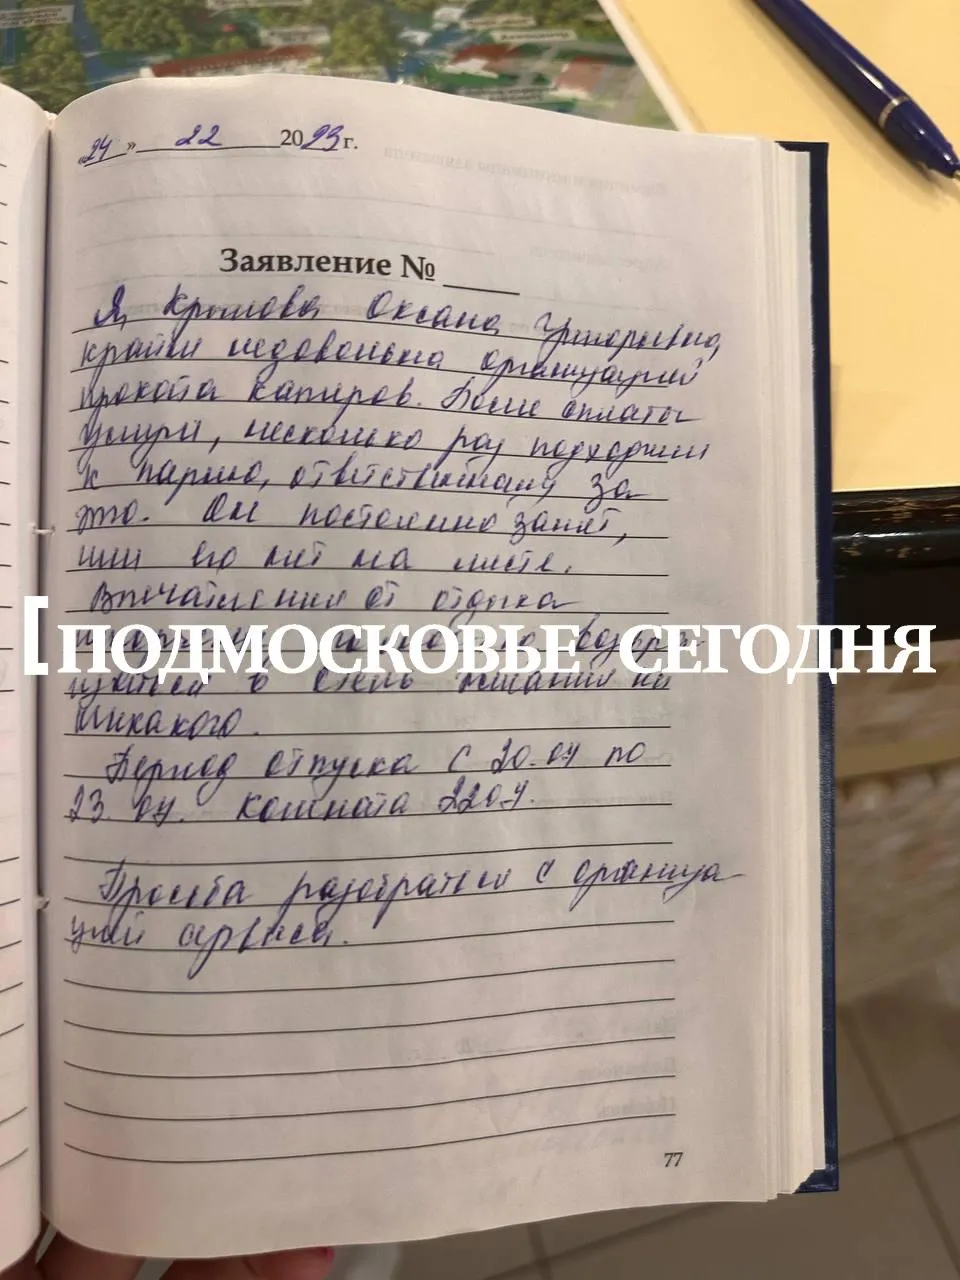 «24» 22 2023 г.
Заявление №
Я, Крылова Оксана Григорьевна,
крайне недовольна организацией
проката сапиров. После оплаты
услуги, несколько раз подходили
к парню, ответственному за
это. Он постоянно занят,
или его нет на месте.
Впечатления от отдыха
возвра-
щаться в отель желания нет
никакого.
Период отпуска с 20.07 по
23.07. Комната 2207.
Просьба разобраться с организа
цией сервиса.
[ ПОДМОСКОВЬЕ СЕГОДНЯ
77